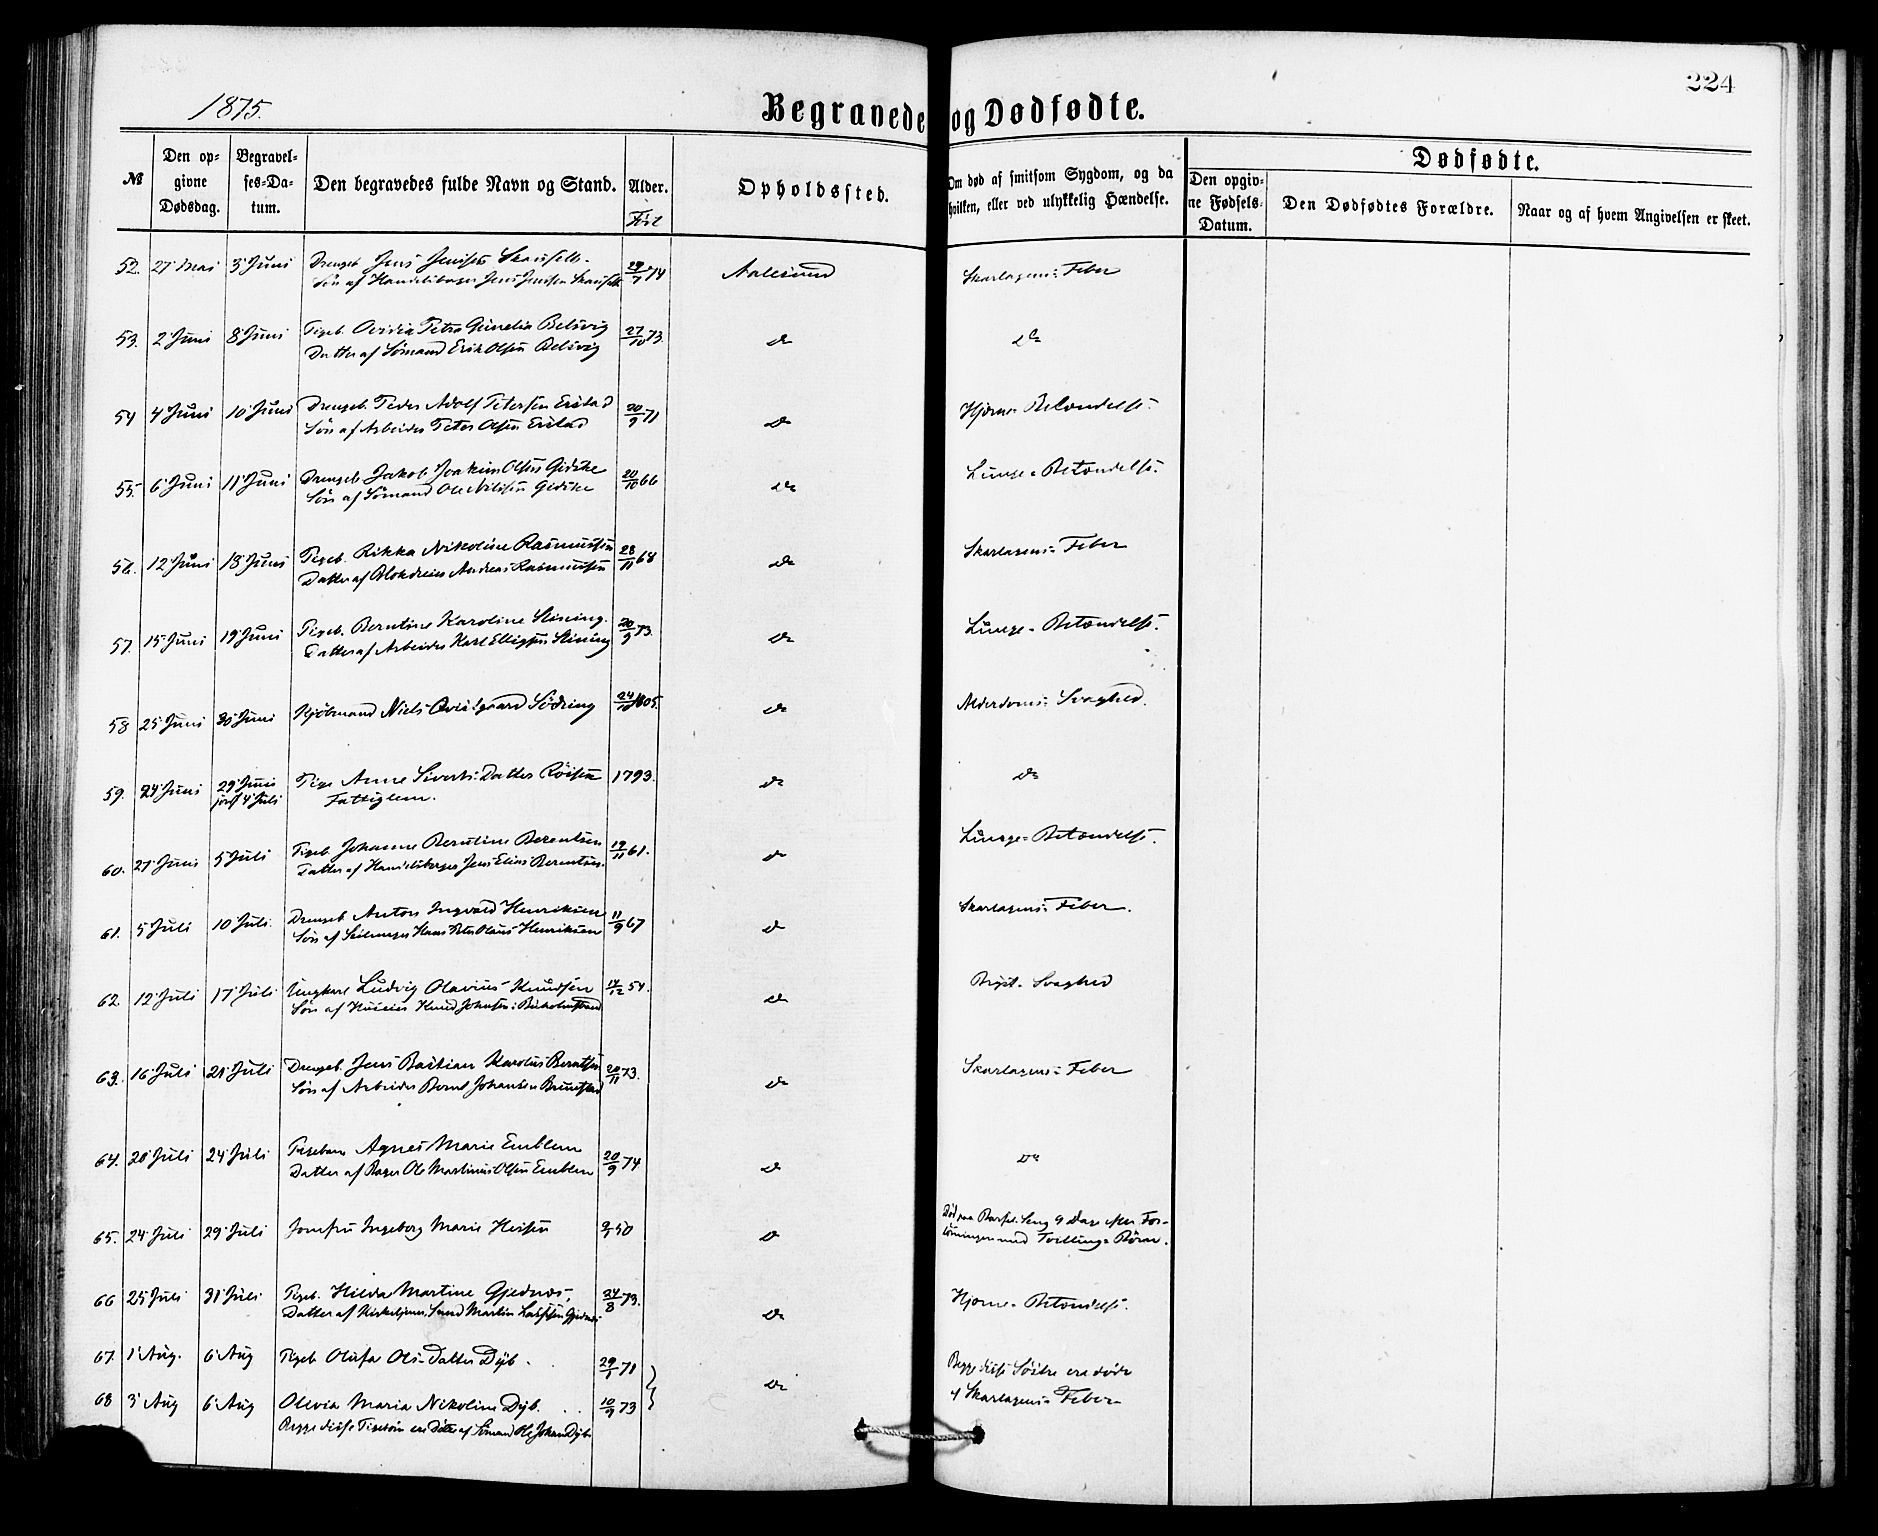 224
1875.
Begravede og Dødfødte.
№
Den op-
givne
Dødsdag.
Begravel-
ses-Da-
tum.
Den begravedes fulde Navn og Stand.
Alder.
Født
Opholdssted.
Om død af smitsom Sygdom, og da
hvilken, eller ved ulykkelig Hændelse.
Dødfødte.
Den opgiv-
ne Fødsels-
Datum.
Den Dødfødtes Forældre.
Naar og af hvem Angivelsen er skeet.
52. 27 Mai 3 Juni Drengeb. Jens Jensen 29/7 74 Aalesund Skarlagens-Feber
Søn af Handelsborger Jens Jensen
53. 2 Juni 8 Juni Pigeb. Ovidia Petra Gunelia Belsvig 27/10 73. do do
Datter af Sømand Erik Olsen Belsvig
54 4 Juni 10 Juni Drengeb. Peder Adolf Petersen Erstad 20/9 71 do Hjerne-Betændelse.
Søn af Arbeider Peter Olsen Erstad
55. 6 Juni 11 Juni Drengeb. Jakob Joakim Olsen Gidske 20/10 66 do Lunge-Betændelse.
Søn af Sømand Ole Nilssen Gidske
56. 12 Juni 18 Juni Pigeb. Rikka Nikoline Rasmussen 28/11 68 do Skarlagens-Feber
Datter af Blokdreier Andreas Rasmussen
57. 15 Juni 19 Juni Pigeb. Berntine Karoline Stening. 20/9 73. do Lunge-Betændelse.
Datter af Arbeider Karl Elligsen Stening
58 25 Juni 30 Juni Kjøbmand Niels Qvistgaard Södring 24/10 1805. do Alderdoms-Svaghed.
59. 24 Juni 29 Juni Pige Anne Siverts-Datter Röisen 1793. do do
jordf 4 Juli Fattiglem.
60. 27 Juni 5 Juli Pigeb. Johanne Berntine Berentsen 19/11 61. do Lunge-Betændelse.
Datter af Handelsborger Jens Elias Berentsen.
61. 5 Juli 10 Juli. Drengeb. Anton Ingvald Henriksen 11/9 67 do Skarlagens-Feber.
Søn af Seilmager Hans Peter Olaus Henriksen
62. 12 Juli 17 Juli Ungkarl Ludvig Olavius Knudsen 14/12 54. do Bryst-Svaghed
Søn af Huseier Knud Johnsen
63. 16 Juli 21 Juli Drengeb. Jens Bastian Karolus Berntsen 20/11 73. do Skarlagens-Feber
Søn af Arbeider Bernt Johansen Brunstad
64. 20 Juli 24 Juli Pigebarn Agnes Marie Emblem 20/9 74 do do
Datter af Bager Ole Martinus Olsen Emblem
65. 24 Juli 29 Juli Jomfru Ingeborg Marie 50 do Död paa Barsel-Seng 9 Dage efter For-
lösningen med Tvilling-Börn.
66 25 Juli 31 Juli Pigeb. Hilda Martine Gjednæs, 24/8 73. do Hjerne-Betændelse.
Datter af Kirketjener Martin Larssen Gjednæs
67. 1 Aug. 6 Aug Pigeb. Olufa Ols-Datter Dyb. 29/1 71 Begge disse Söstre ere döde
68 3 Aug 6 Aug Olevia Maria Nikoline Dyb. 10/9 73 do af Skarlagens-Feber
Begge disse Pigebørn ere Døtre af Sömand Ole Johan Dyb